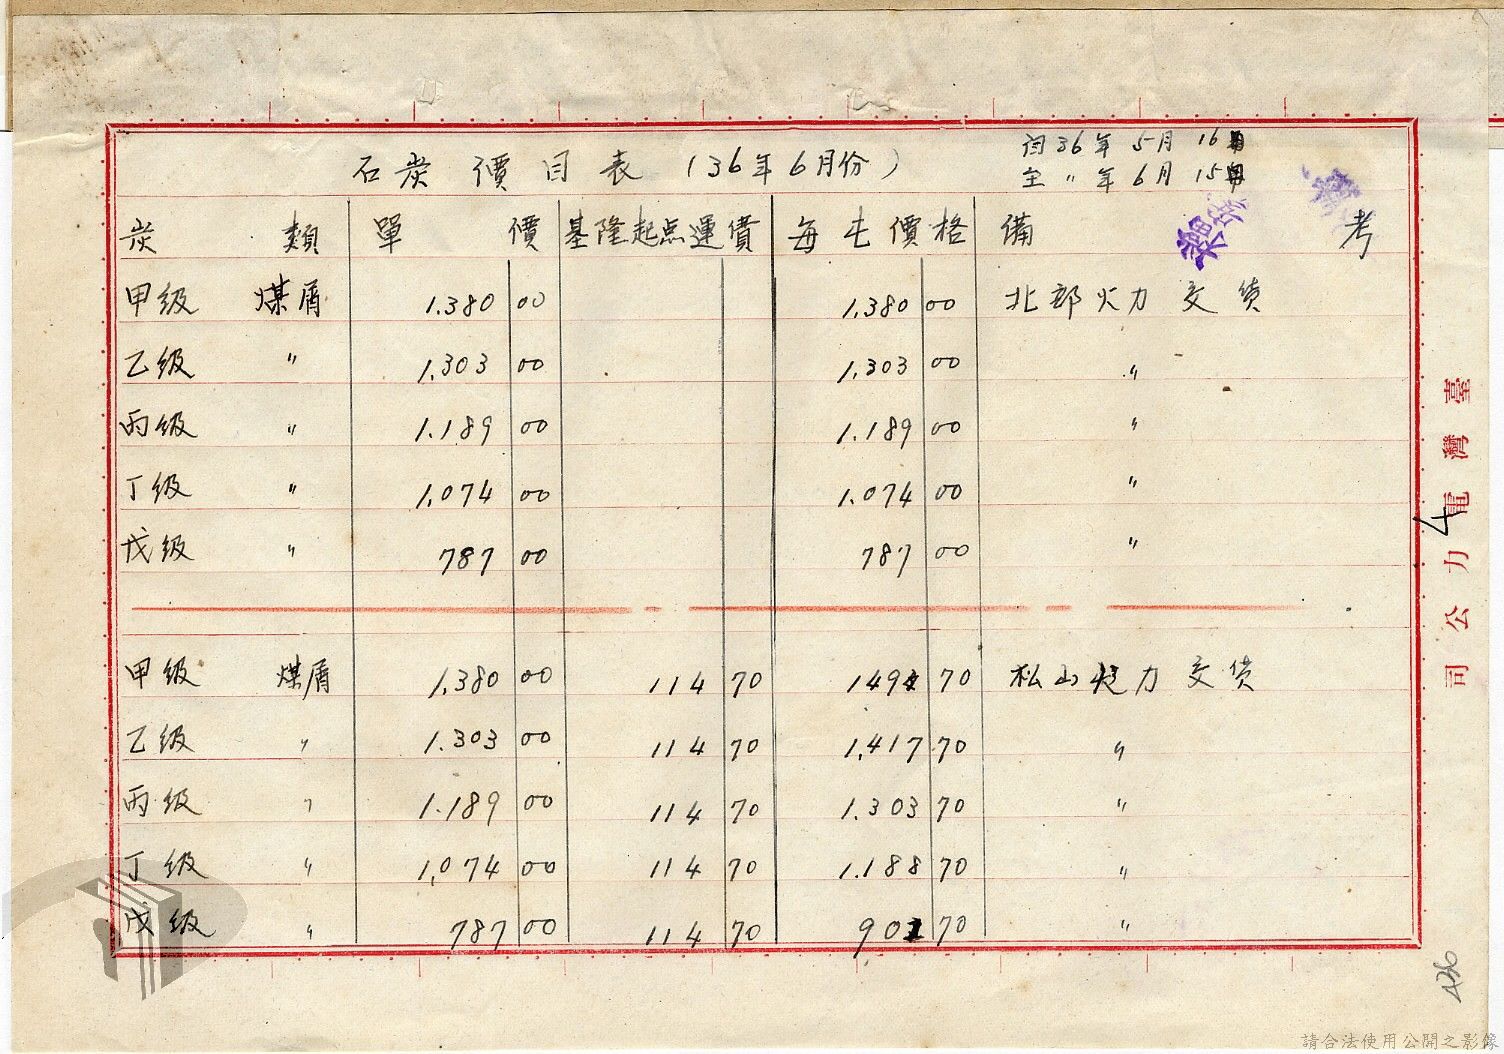 石炭價目表(36年6月份)
自36年5月16日
至〃年6月15日
炭類 單價 基隆起点運費 每屯價格 備考
甲級 煤屑 1.380 00 1,380 00 北部火力交貨
乙級 〃 1,303 00 1,303 00 〃
丙級 〃 1.189 00 1.189 00 〃
丁級 〃 1,074 00 1.074 00 〃
戊級 〃 787 00 787 00 〃
甲級 煤屑 1,380 00 114 70 1494 70 松山火力交貨
乙級 〃 1.303 00 114 70 1,417 70 〃
丙級 〃 1.189 00 114 70 1.303 70 〃
丁級 〃 1,074 00 114 70 1.188 70 〃
戊級 〃 787 00 114 70 901 70 〃
臺灣電力公司
4
請合法使用公開之影像